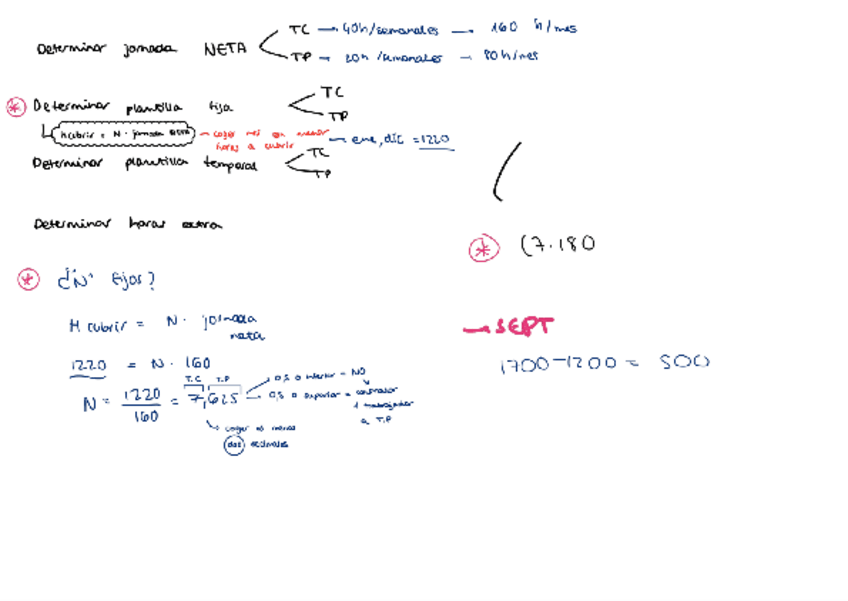 TC → 40h/semanales — 160 h/mes
Determinar jornada NETA
TP → 20h/semanales – 80h/mes
* Determinar plantilla fija
TC
TP
Hcubrir = N · jornada → coger mes con menor
horas a cubrir
→ ene, dic = 1220
Determinar plantilla temporal
TC
TP
Determinar horas extra
* (7·180
* ¿Nº fijos?
H cubrir = N · jornada
neta
→ SEPT
1700-1200 = 500
1220 = N · 160
T.C T.P
N = 1220 / 160 = 7,625
0,5 o inferior = NO
0,5 o superior = contratar
1 trabajador
a T.P
coger al menos
dos decimales